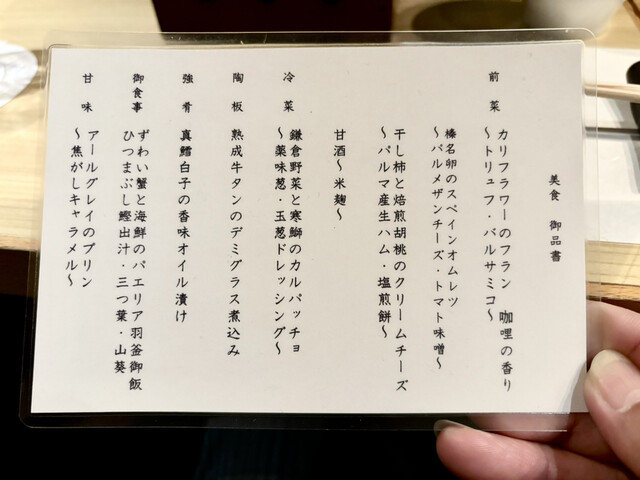 美食 御品書
前菜 カリフラワーのフラン 咖哩の香り
～トリュフ・バルサミコ～
榛名卵のスペインオムレツ
～パルメザンチーズ・トマト味噌～
干し柿と焙煎胡桃のクリームチーズ
～パルマ産生ハム・塩煎餅～
甘酒～米麹～
冷菜 鎌倉野菜と寒鰤のカルパッチョ
～薬味葱・玉葱ドレッシング～
陶板 熟成牛タンのデミグラス煮込み
強肴 真鱈白子の香味オイル漬け
御食事 ずわい蟹と海鮮のパエリア羽釜御飯
ひつまぶし鰹出汁・三つ葉・山葵
甘味 アールグレイのプリン
～焦がしキャラメル～